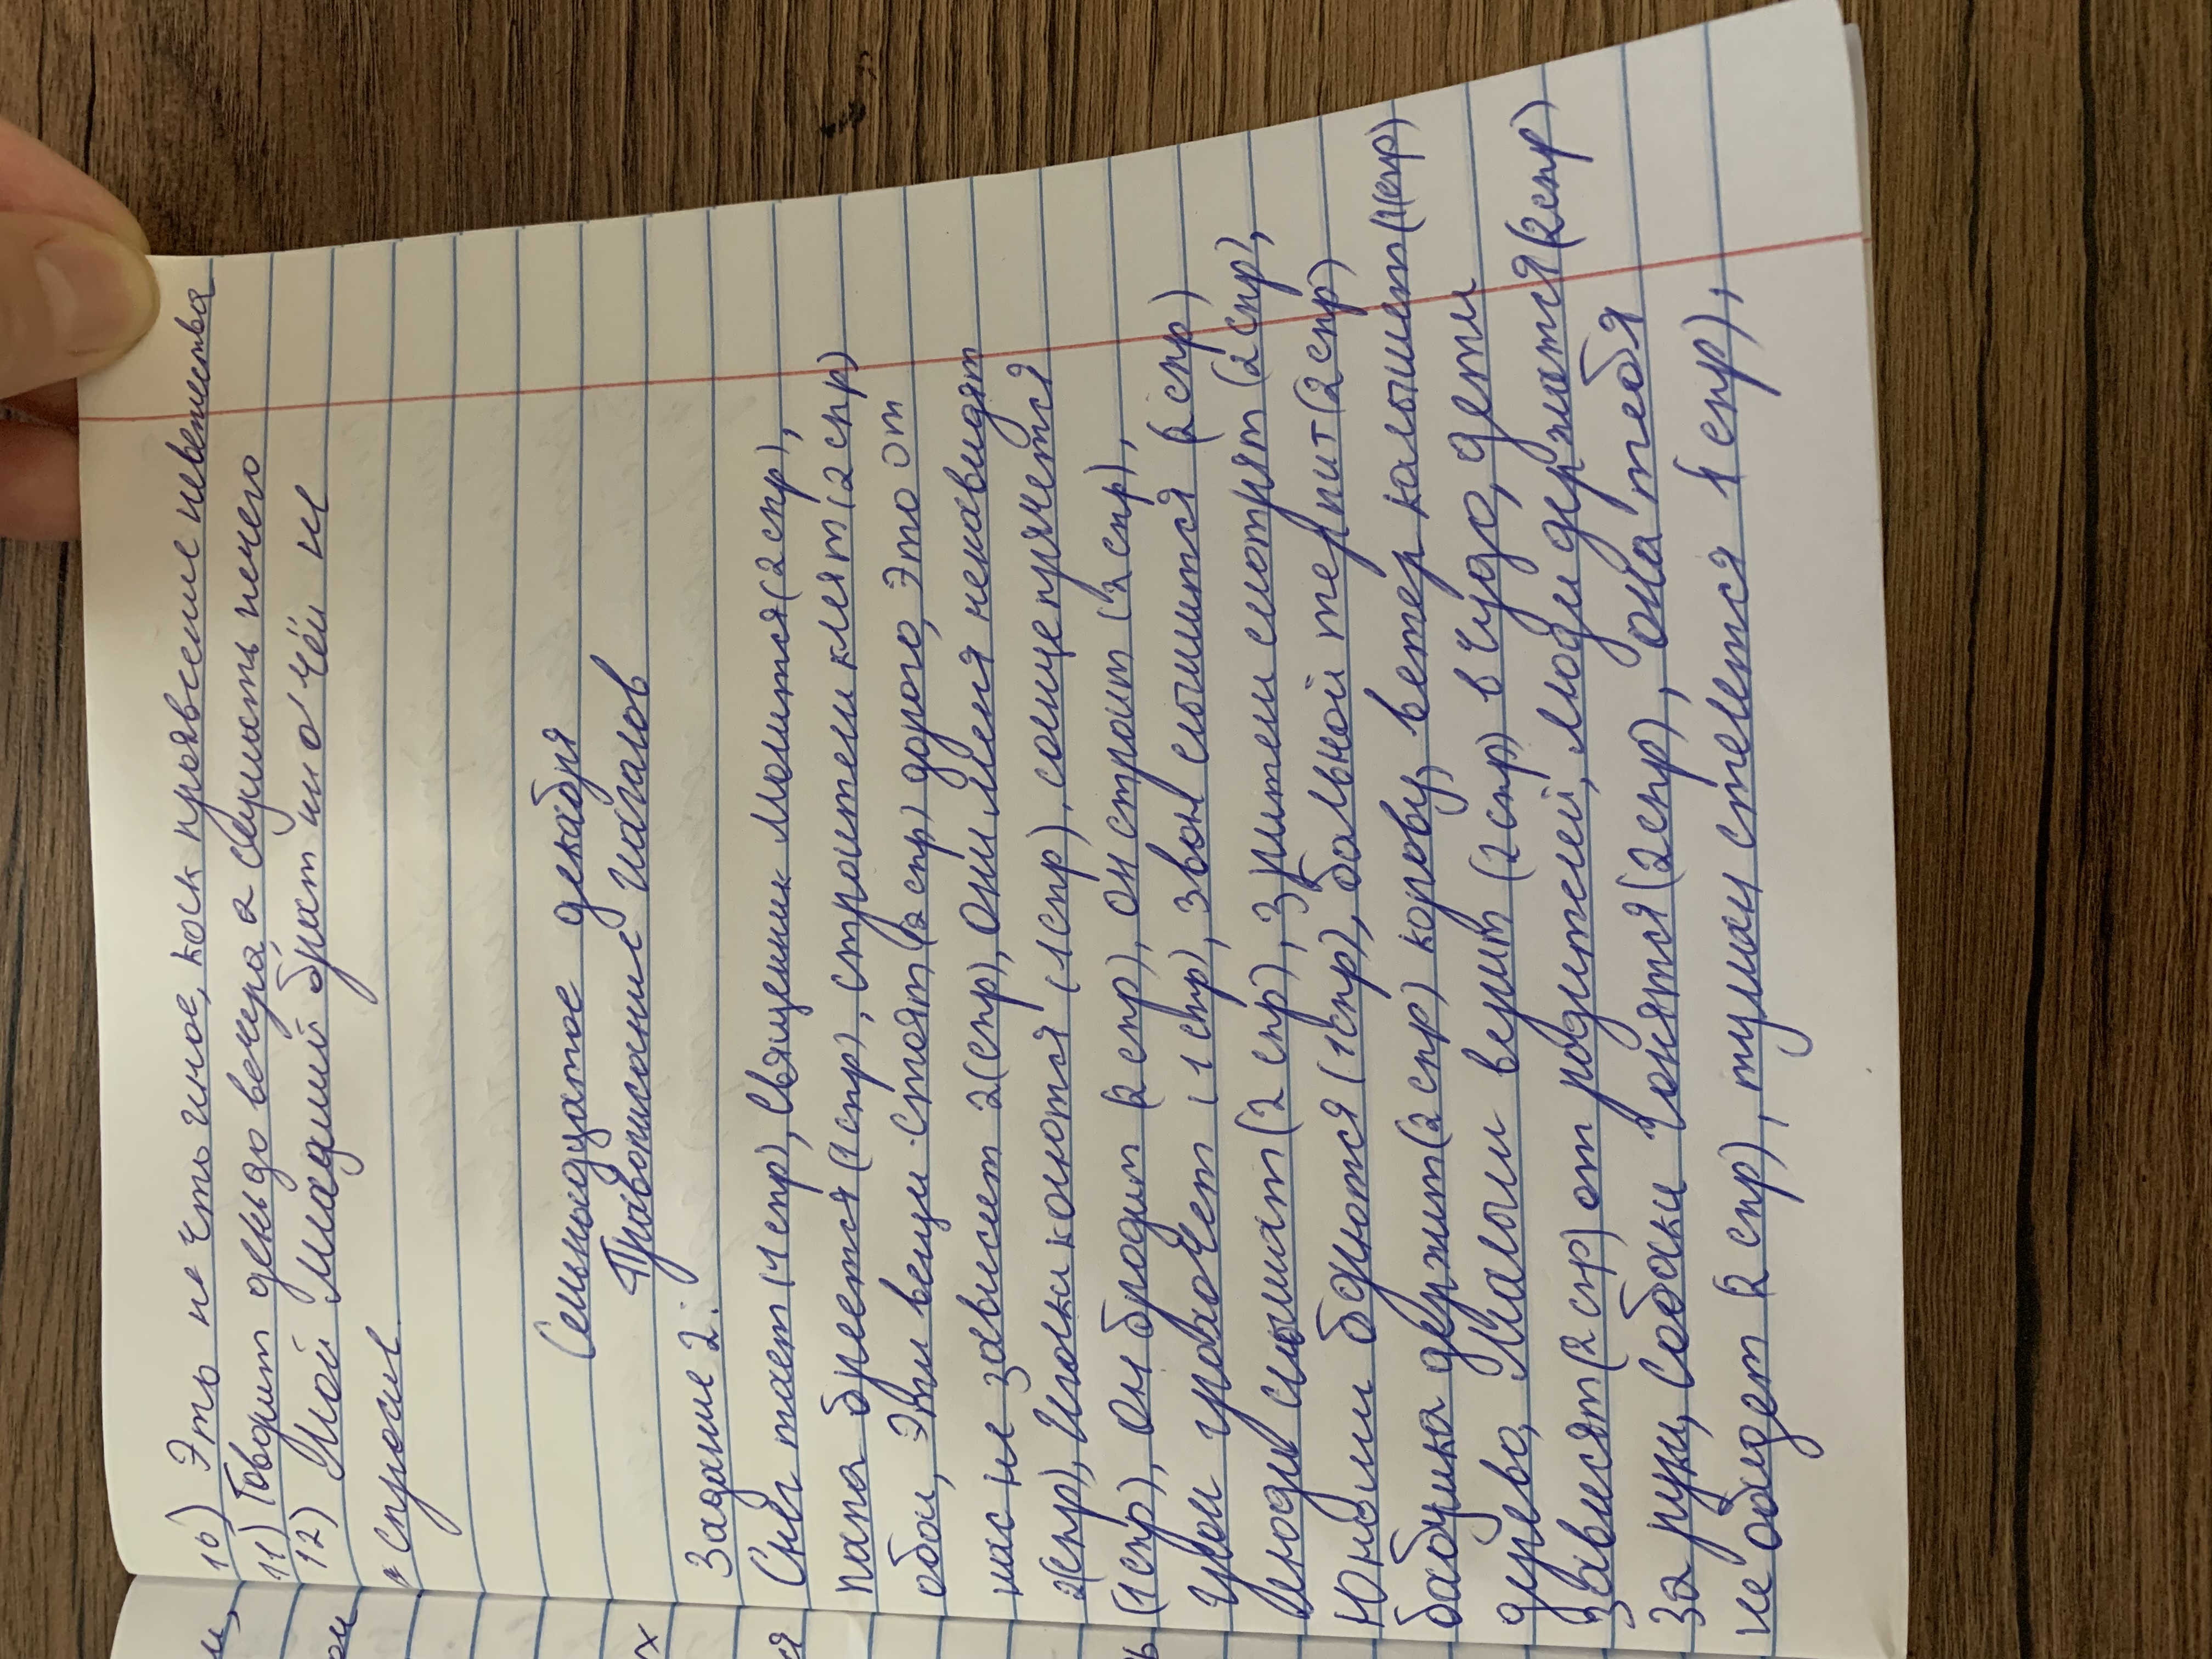 10) Это не что иное, как проявление невежества
11) Говорит день до вечера, а слушать нечего
12) Мой младший брат ни о чём и
спросил
Семнадцатое декабря
Правописание глаголов
Задание 2.
Снег тает (1 спр), Священник молится (2 спр),
папа бреется (1 спр), строители клеят (2 спр)
обои, Эти вещи стоят (2 спр) дорого, Это от
нас не зависит 2 (спр), они меня ненавидят
2(спр), Иголки колются (1 спр), солнце прячется
(1 спр), он бродит (2 спр), он строит (2 спр),
гром грохочет (1 спр), звон слышится (2 спр)
люди слышат (2 спр), Зрители смотрят (2 спр),
Юноши борются (1 спр), больной терпит (2 спр)
бабушка держит (2 спр) корову, ветер колышет (1 спр)
дерево, Малыш верит (2 спр) в чудо, дети
зависят (2 спр) от родителей, люди держатся (2 спр)
за руки, Собаки гонятся (2 спр), она тебя
не обидет 2 спр), туман стелется 1 спр),
м,
ом
х
ся
ь